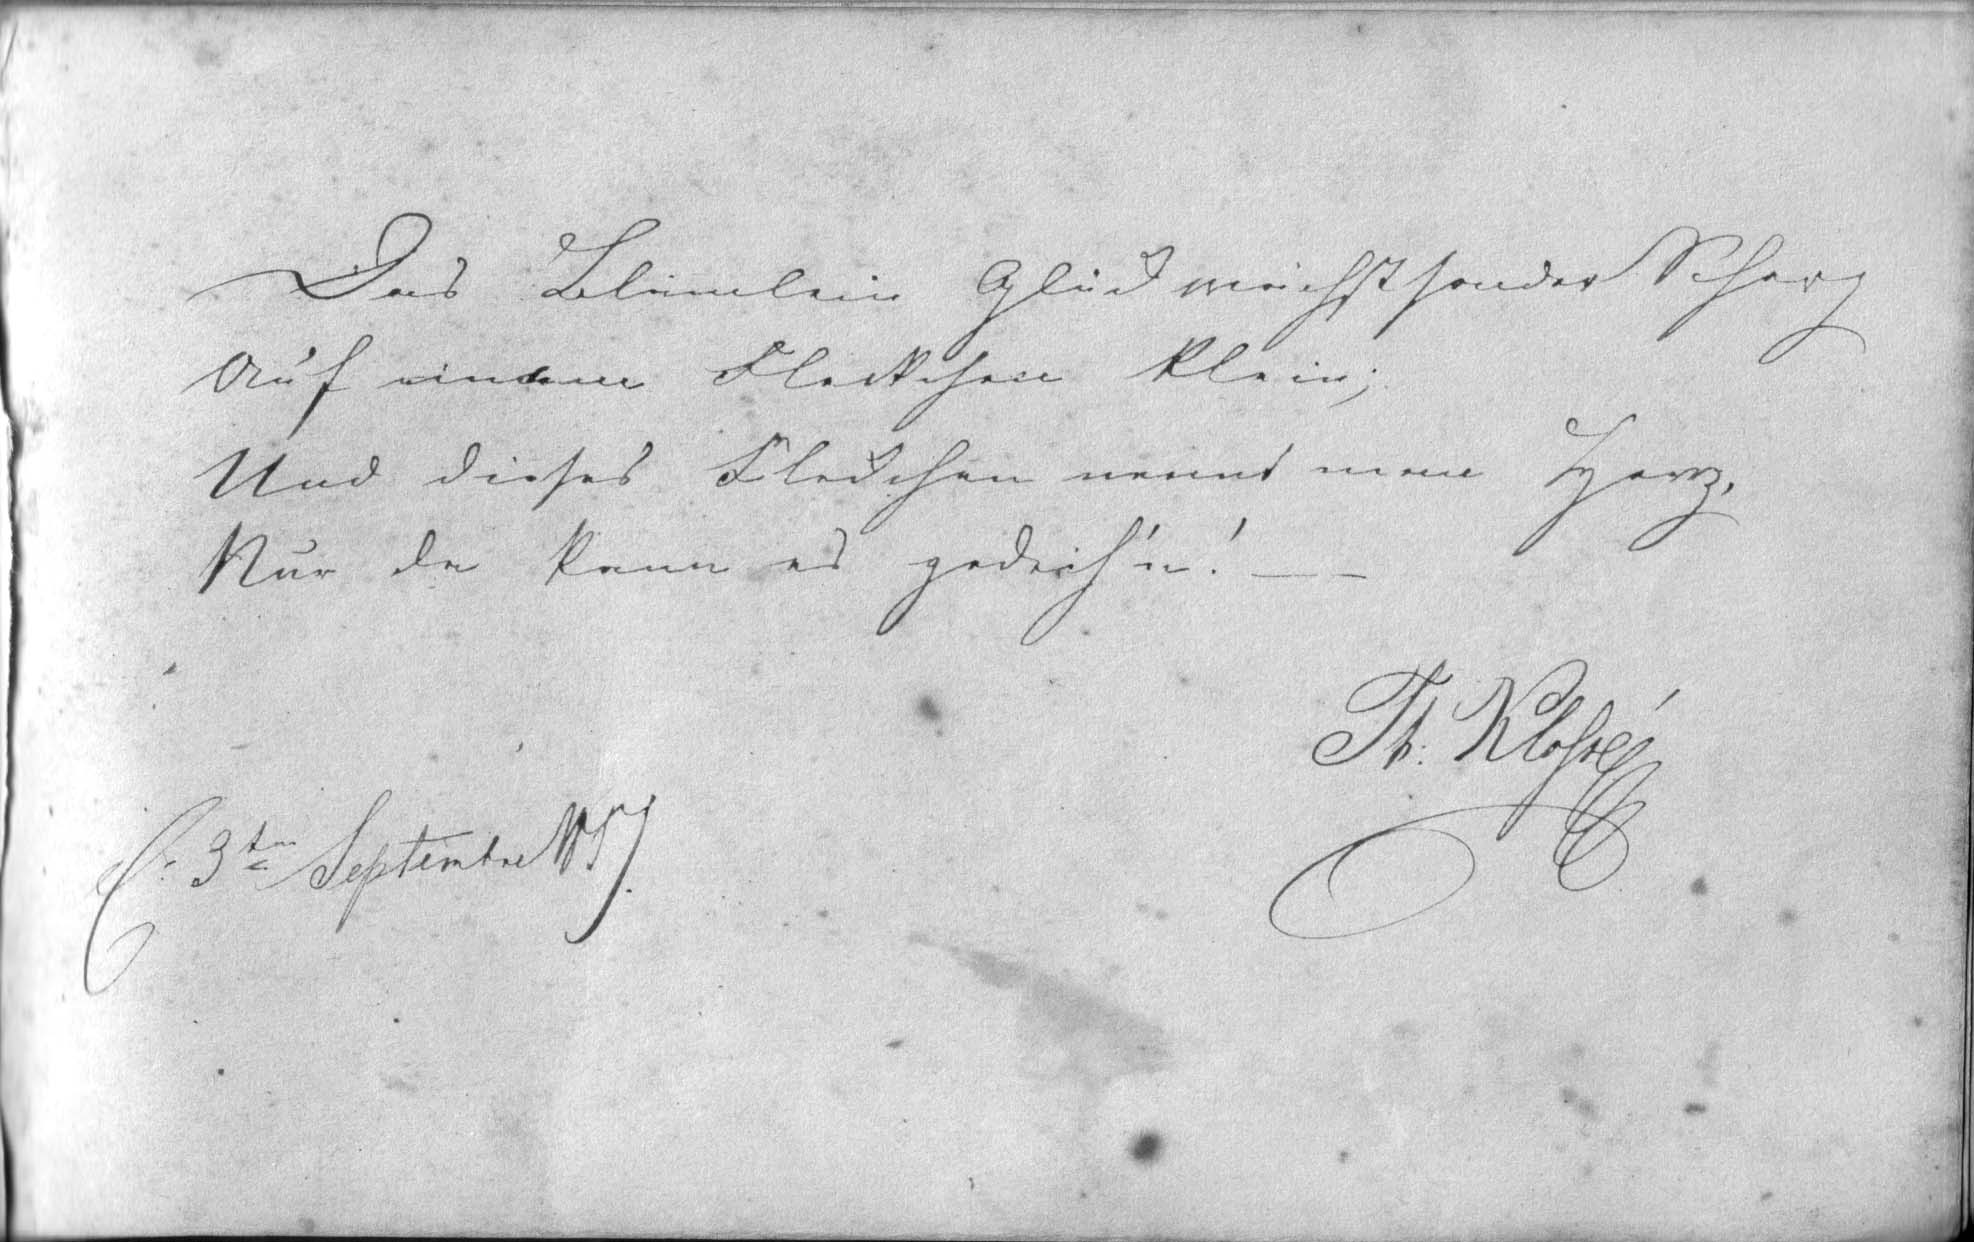 Das Blümlein Glück wächst sonder Scherz
Auf einem Fleckchen klein;
Und dieses Fleckchen nennt man Herz,
Nur da kann es gedeih'n! —
Th: Klossé
C. 3ten Septembre